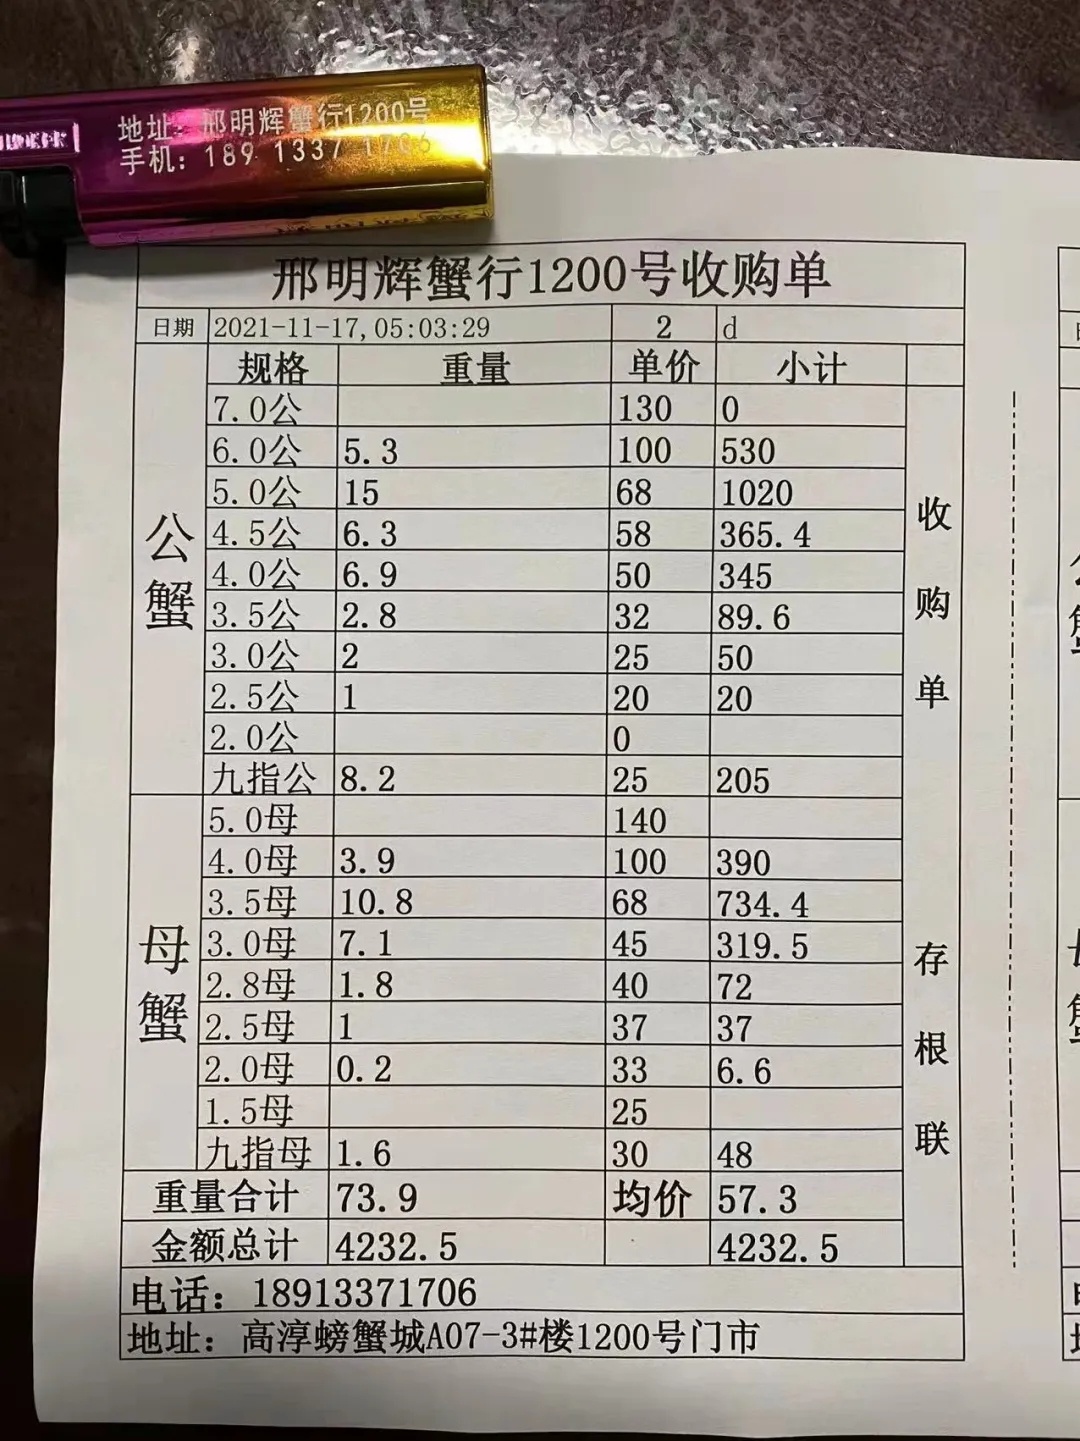 地址：邢明辉蟹行1200号
手机：189 1337 1706
邢明辉蟹行1200号收购单
日期 2021-11-17,05:03:29 2 d
规格 重量 单价 小计
公蟹
7.0公 130 0
6.0公 5.3 100 530
5.0公 15 68 1020
4.5公 6.3 58 365.4
4.0公 6.9 50 345
3.5公 2.8 32 89.6
3.0公 2 25 50
2.5公 1 20 20
2.0公 0
九指公 8.2 25 205
母蟹
5.0母 140
4.0母 3.9 100 390
3.5母 10.8 68 734.4
3.0母 7.1 45 319.5
2.8母 1.8 40 72
2.5母 1 37 37
2.0母 0.2 33 6.6
1.5母 25
九指母 1.6 30 48
收购单 存根联
重量合计 73.9 均价 57.3
金额总计 4232.5 4232.5
电话：18913371706
地址：高淳螃蟹城A07-3#楼1200号门市